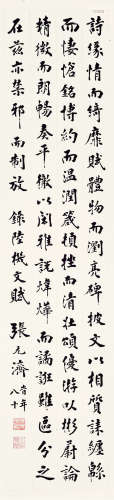 詩緣情而綺靡賦體物而瀏亮碑披文以相質誄纏緜
而悽愴銘博約而溫潤箴頓挫而清壯頌優游以彬蔚論
精微而朗暢奏平徹以閑雅說煒燁而譎誑雖區分之
在茲亦禁邪而制放 錄陸機文賦 張元濟 旹年八十